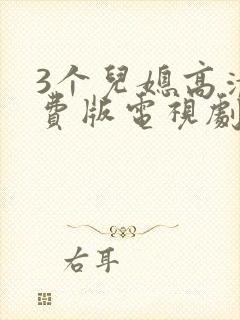 3个兒媳高
費版電視劇
右耳